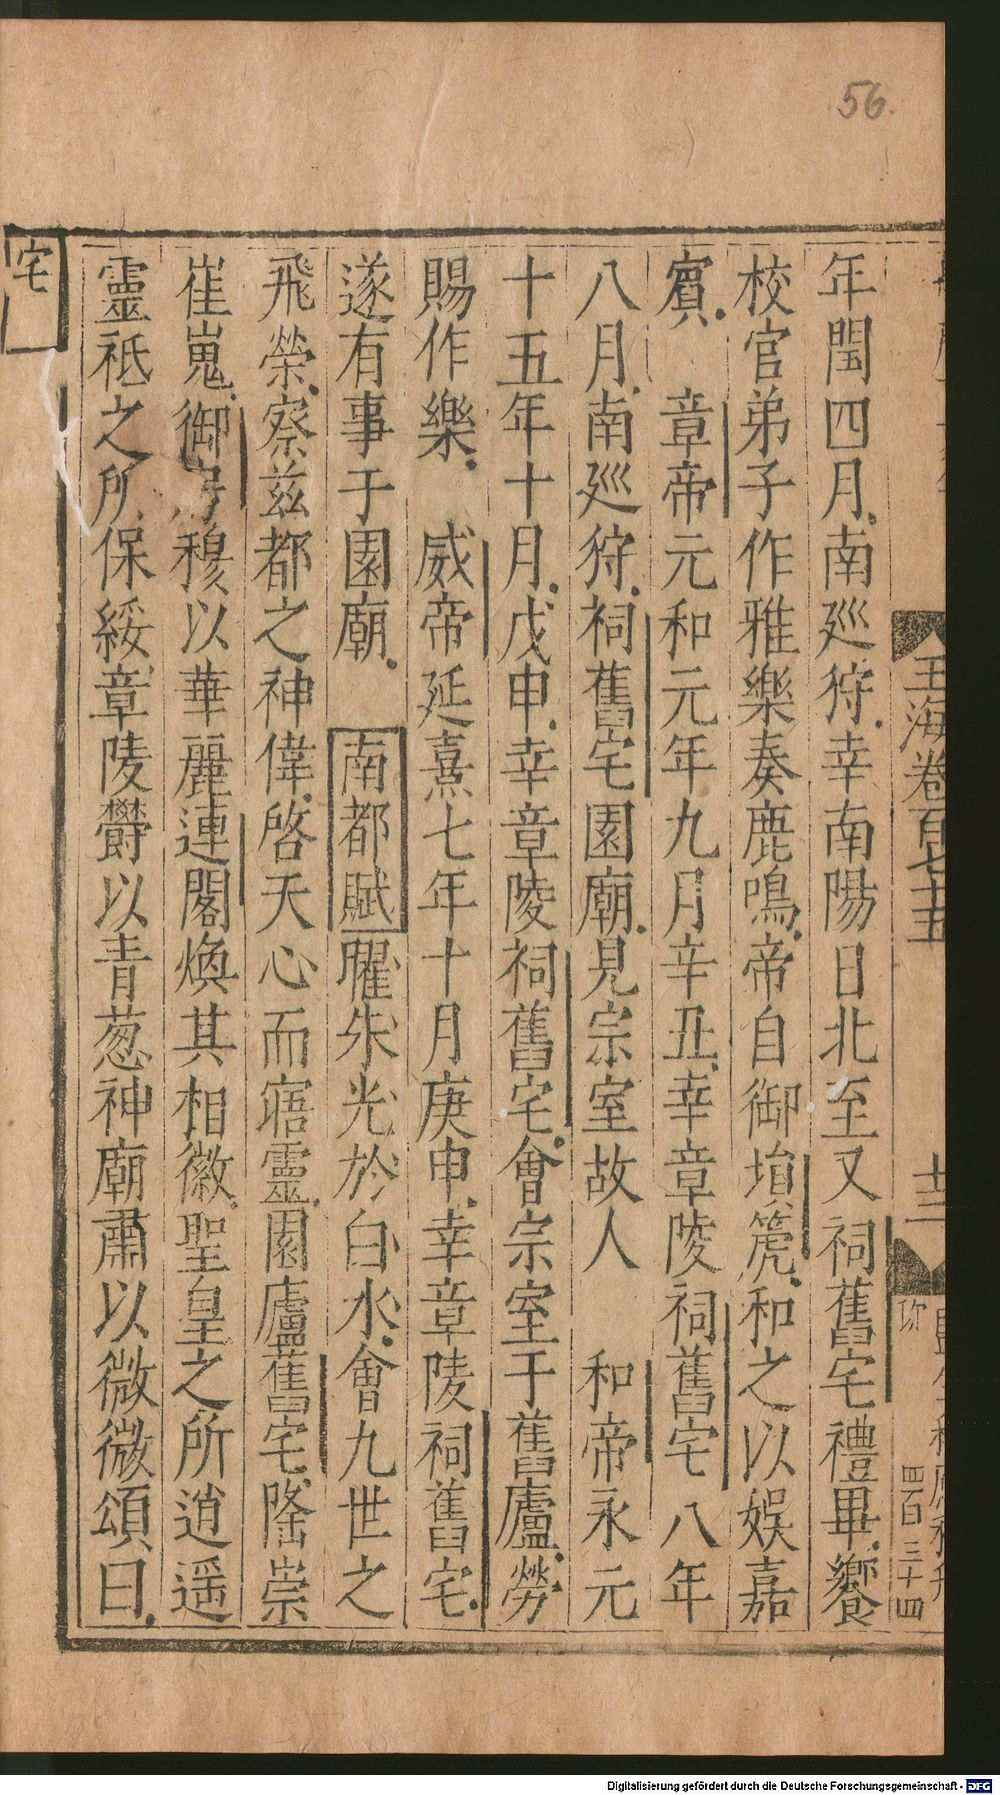 56
玉海卷百七十五
十二
四百三十四
年閏四月南廵狩幸南陽日北至又祠舊宅禮畢饗
校官弟子作雅樂奏鹿鳴帝自御塤篪和之以娛嘉
賓　章帝元和元年九月辛丑幸章陵祠舊宅八年
八月南廵狩祠舊宅園廟見宗室故人　和帝永元
十五年十月戊申幸章陵祠舊宅會宗室于舊廬勞
賜作樂　威帝延熹七年十月庚申幸章陵祠舊宅
遂有事于園廟　南都賦曜朱光於白水會九世之
飛榮察兹都之神偉啓天心而寤靈園廬舊宅隆崇
崔嵬御房穆以華麗連閣煥其相徽聖皇之所逍遥
靈祗之所保綏章陵欝以青葱神廟肅以微微頌曰
宅
Digitalisierung gefördert durch die Deutsche Forschungsgemeinschaft - DFG